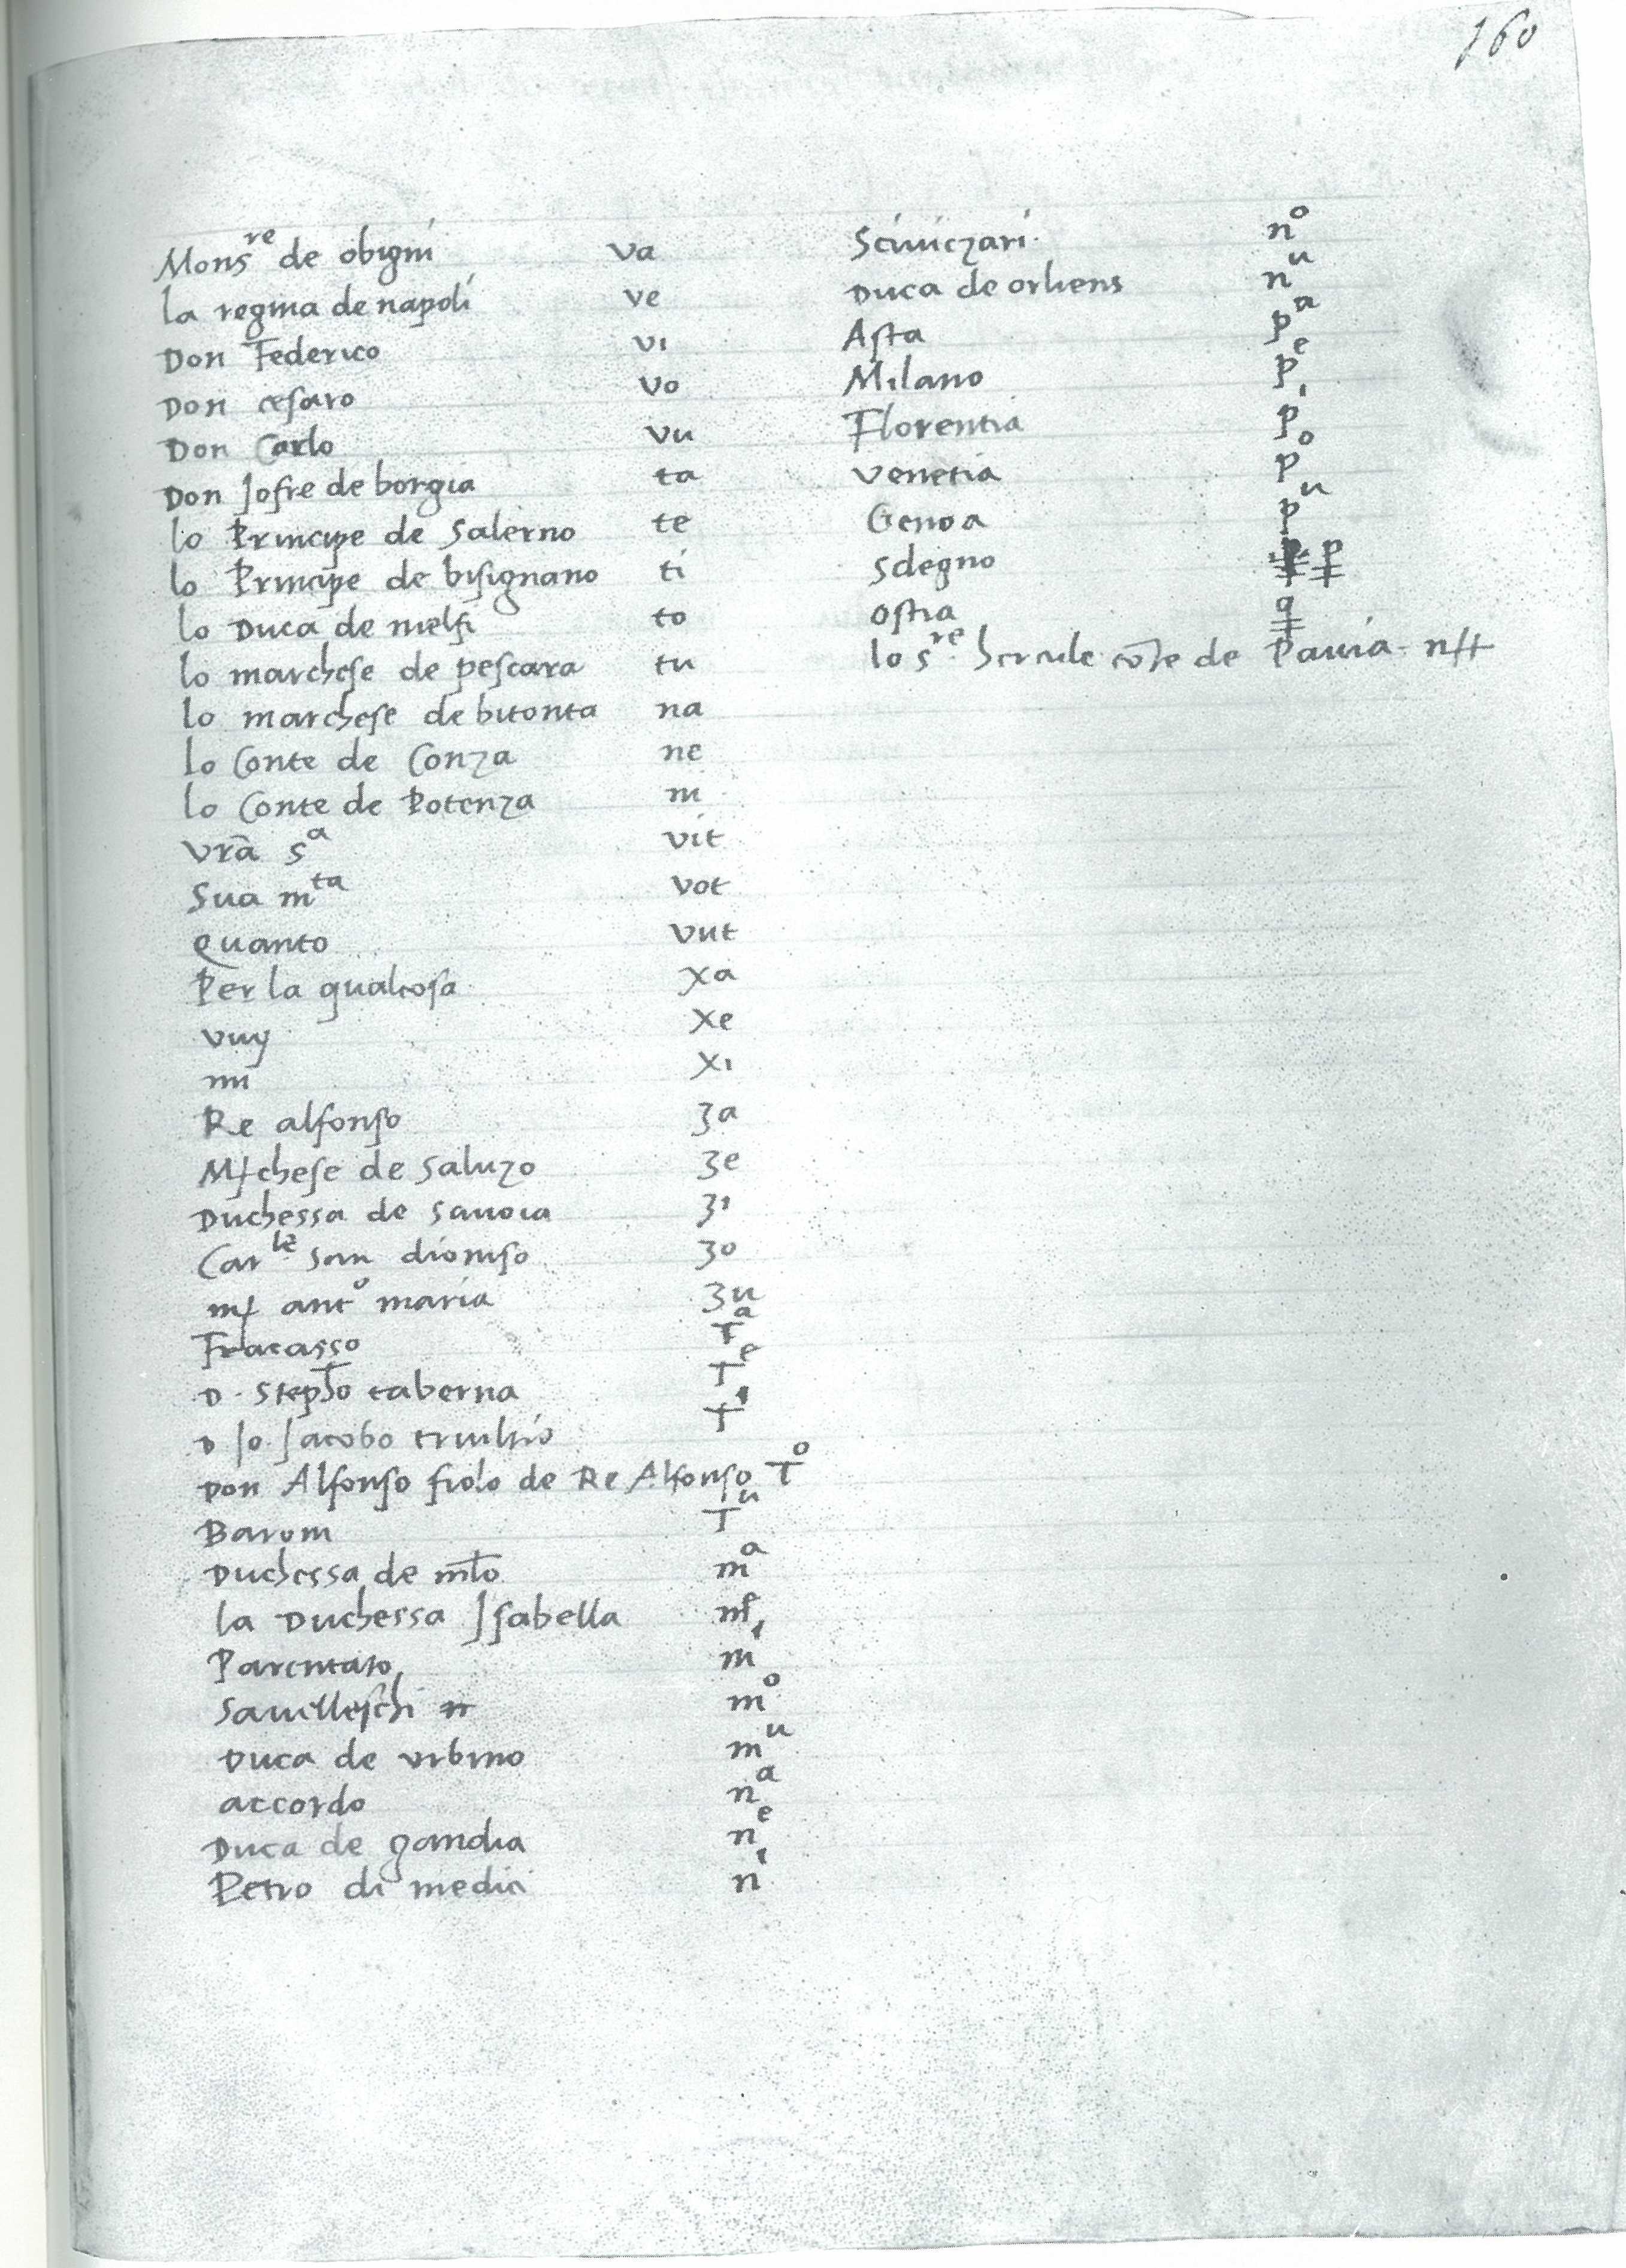 160
Mons^re de obigni va
la regina de napoli ve
Don Federico vi
Don cesaro vo
Don Carlo vu
Don Jofre de borgia ta
lo Principe de Salerno te
lo Principe de bisignano ti
lo Duca de melfi to
lo marchese de pescara tu
lo marchese de bitonta na
lo Conte de Conza ne
lo Conte de Potenza ni
Vr̄a s^a vit
Sua m^ta vot
Quanto vut
Per la qualcosa xa
vuy xe
mi xi
Re alfonso 3a
M chese de Saluzo 3e
Duchessa de Sauoia 3i
Car^le san dioniso 3o
ant^o maria 3u
Fracasso T^a
D. Steph̄o taberna T^e
D Jo. Jacobo triultio T^i
Don Alfonso fiolo de Re Alfonso T^o
Baroni T^u
Duchessa de ml̄o m^a
la Duchessa Isabella m^e
Parentato m^i
Sauelleschi m^o
Duca de urbino m^u
accordo n^a
Duca de gandia n^e
Petro di medici n^i
n^o
Duca de orliens n^u
Asta p^a
Milano p^e
Florentia p^i
Venetia p^o
Genoa p^u
Sdegno p
Ostia q
lo s^re hercule de Pauia